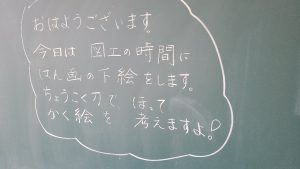 おはようございます。
今日は 図工の時間に
はん画の下絵をします。
ちょうこく刀で、ほって
かく絵を 考えますよ！